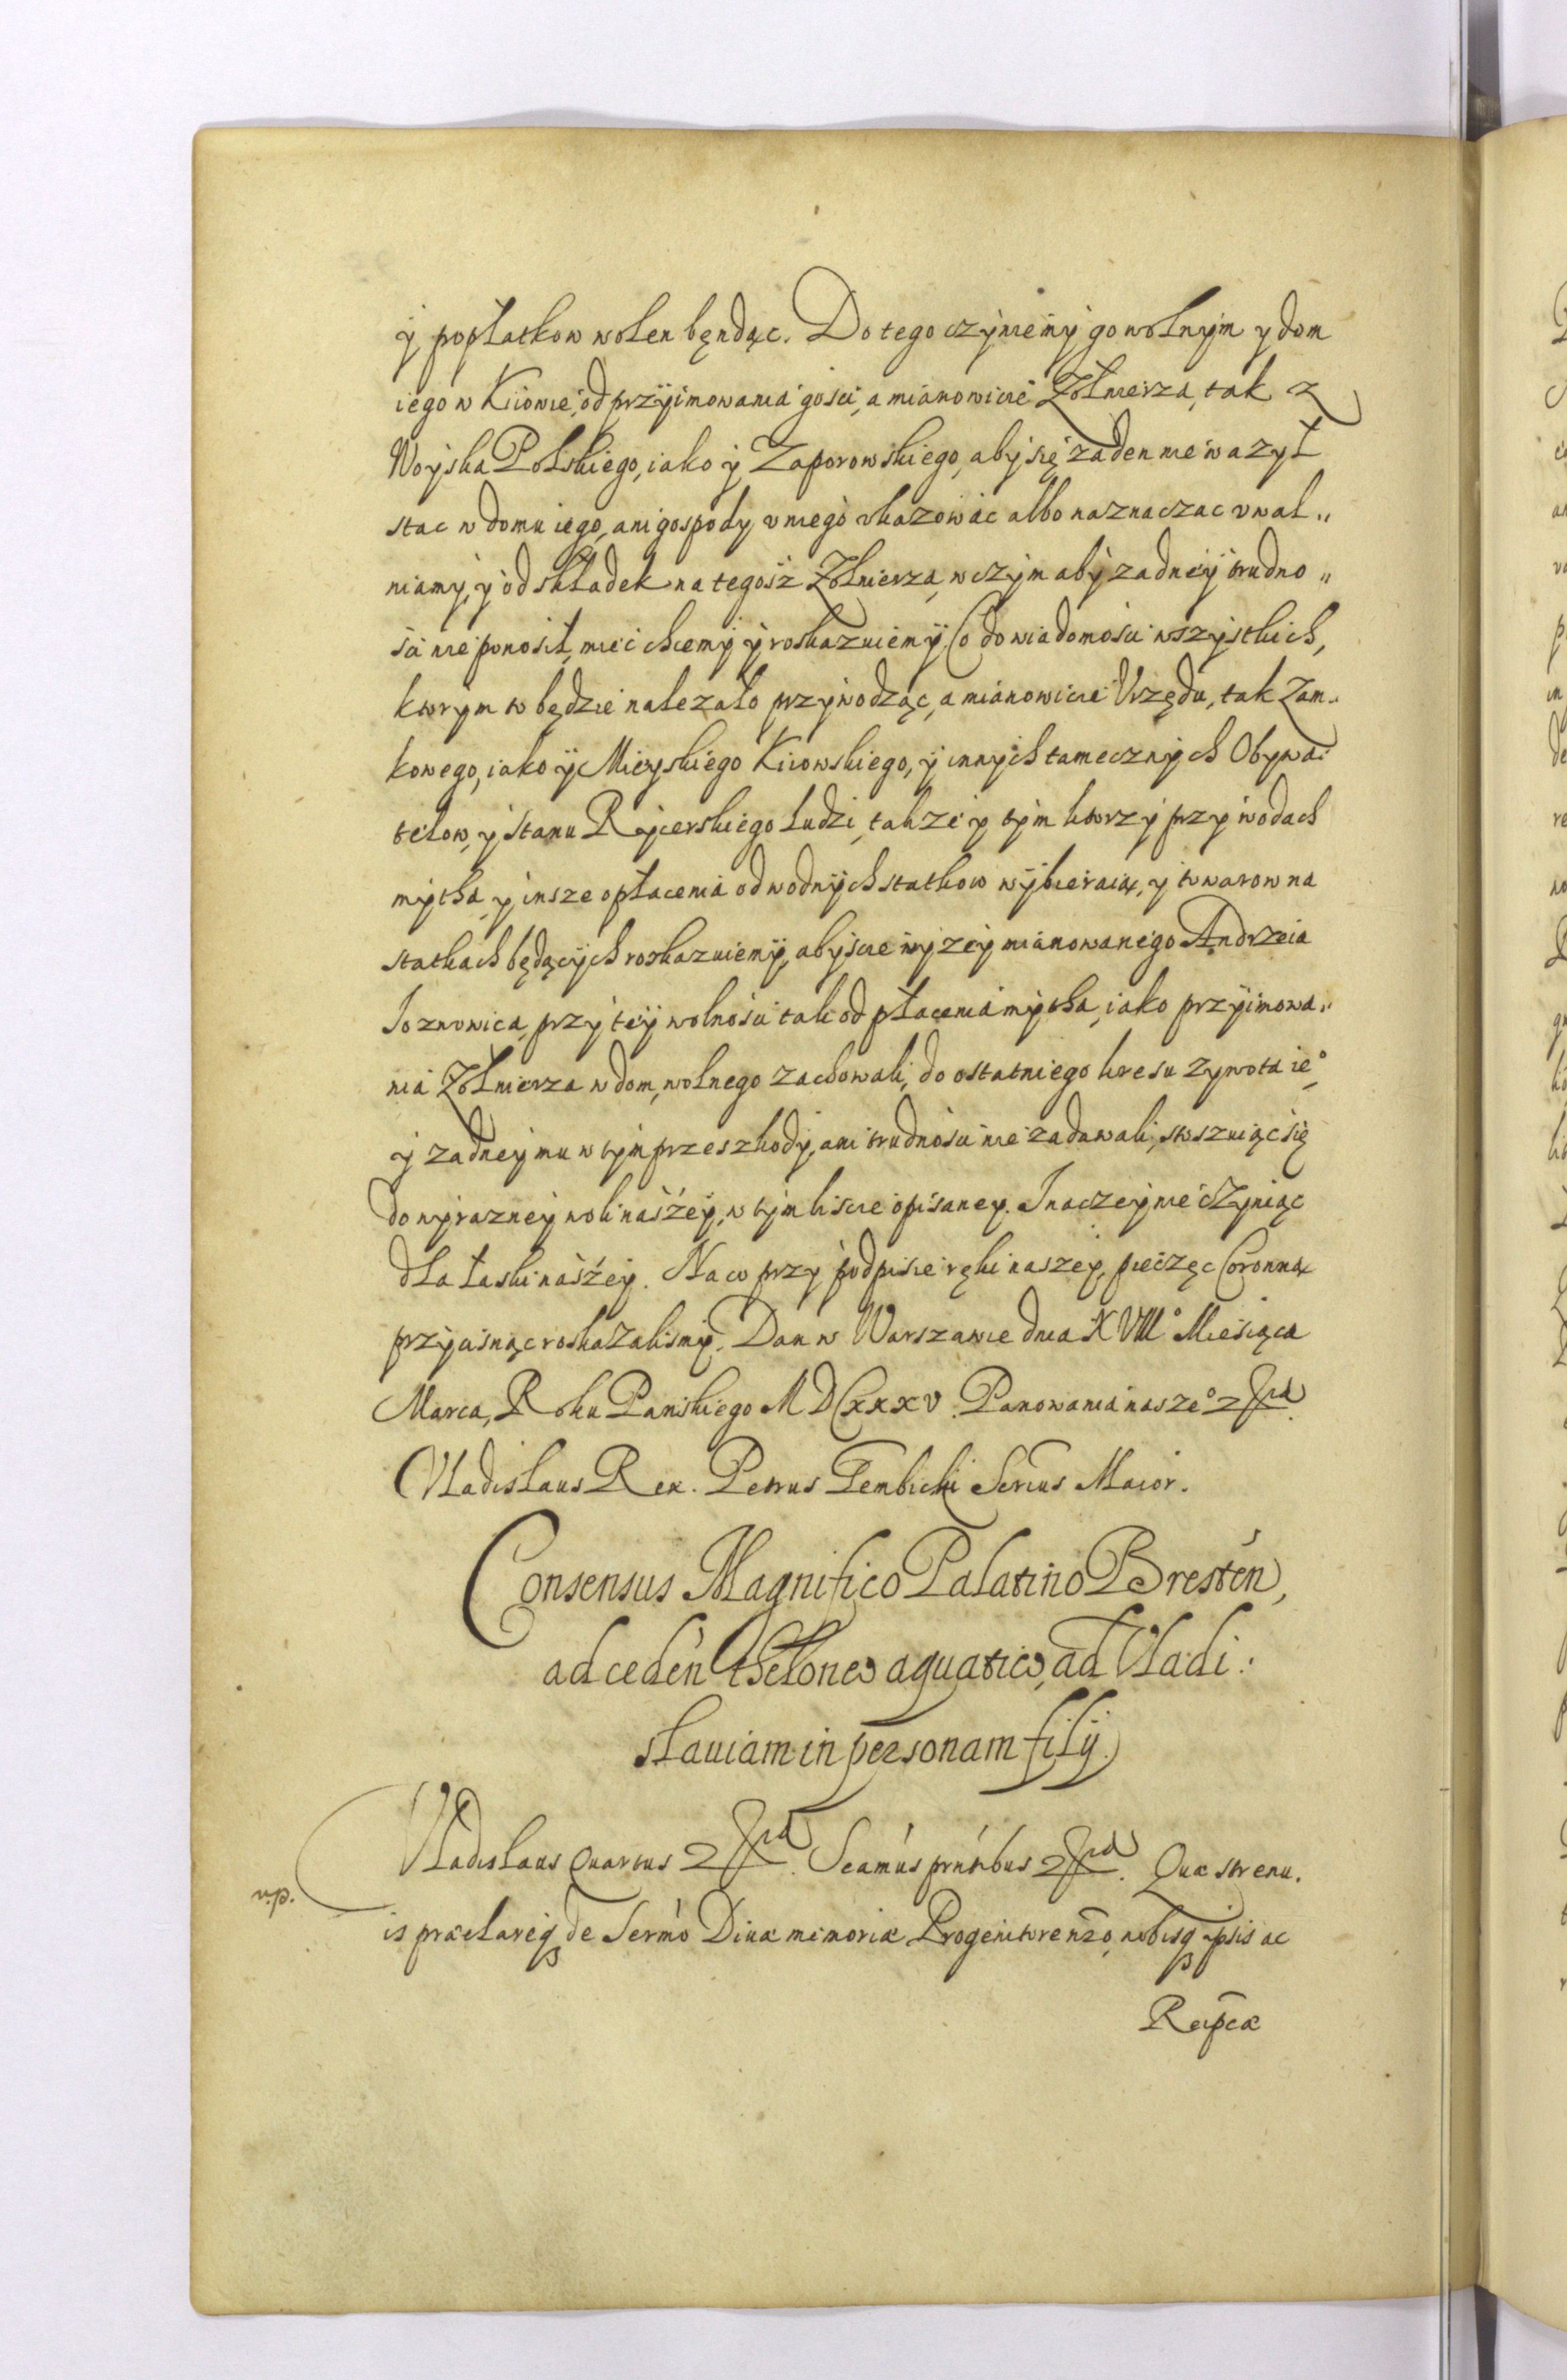 ÿ popłatkow wolen będąc. Do tego czÿniemÿ go wolnÿm y dom
iego w Kiiowie, od przÿimowania gosci, a mianowicie Zołnierza, tak z
Woÿska Polskiego, iako ÿ Zaporowskiego, abÿ się zaden nie wazył
stac w domu iego, ani gospody v niego vkazowac albo naznaczac vwal„
niamÿ, ÿ od składek na tegosz Zołnierza, w czÿm abÿ zadneÿ trudno„
sci nie ponosił, miec chcemÿ ÿ roskazuiemÿ. Co do wiadomosci wszÿstkich,
ktorÿm to będzie nalezało przÿwodząc, a mianowicie Vrzędu, tak Zam„
kowego, iako ÿ Mieyskiego Kiiowskiego, ÿ innÿch tamecznÿch Obÿwa„
telow, ÿ stanu Rÿcerskiego ludzi, takze ÿ tÿm ktorzÿ przÿ wodach
mÿtha, ÿ insze opłacenia od wodnÿch statkow wÿbieraią, ÿ towarow na
statkach będącÿch roskazuiemÿ, abÿscie wÿzeÿ mianowanego Andrzeia
Ioznowica, przÿ teÿ wolnosci tak od płacenia mÿtha, iako przÿimowa„
nia Zołnierza w dom, wolnego zachowali, do ostatniego kresu zywota ie°
ÿ zadneÿ mu w tÿm przeszkodÿ, ani trudnosci nie zadawali, stoszuiąc się
do wÿrazneÿ woli naszeÿ, w tÿm liscie opisaney. Inaczeÿ nie czÿniąc
dla łaski naszeÿ. Na co przÿ podpisie ręki naszeÿ, pieczęc Coronną
przÿcisnąc roskazalismÿ. Dan w Warszawie dnia XVIII° Miesiąca
Marca, Roku Panskiego MDCXXXV. Panowania nasze°
Vladislaus Rex. Petrus Gembicki Secrius Maior.
Consensus Magnifico Palatino Bresten,
ad ceden theloneo aquatico, ad Vladi:
slauiam in personam filij.
Vladislaus Quartus Seamus prntibus Quæ strenu.
v.p.
is præclareq de Sermo Diuæ memoriæ Progenitore nro, nobisq ipsis ac
Reipcæ